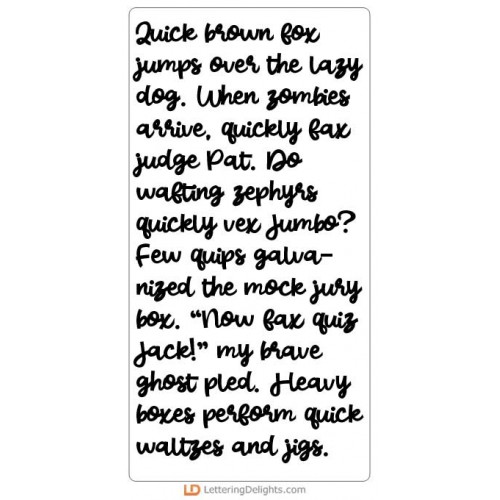 Quick brown fox
jumps over the lazy
dog. When zombies
arrive, quickly fax
judge Pat. Do
wafting zephyrs
quickly vex Jumbo?
Few quips galva-
nized the mock jury
box. “Now fax quiz
Jack!” my brave
ghost pled. Heavy
boxes perform quick
waltzes and jigs.
LD LetteringDelights.com